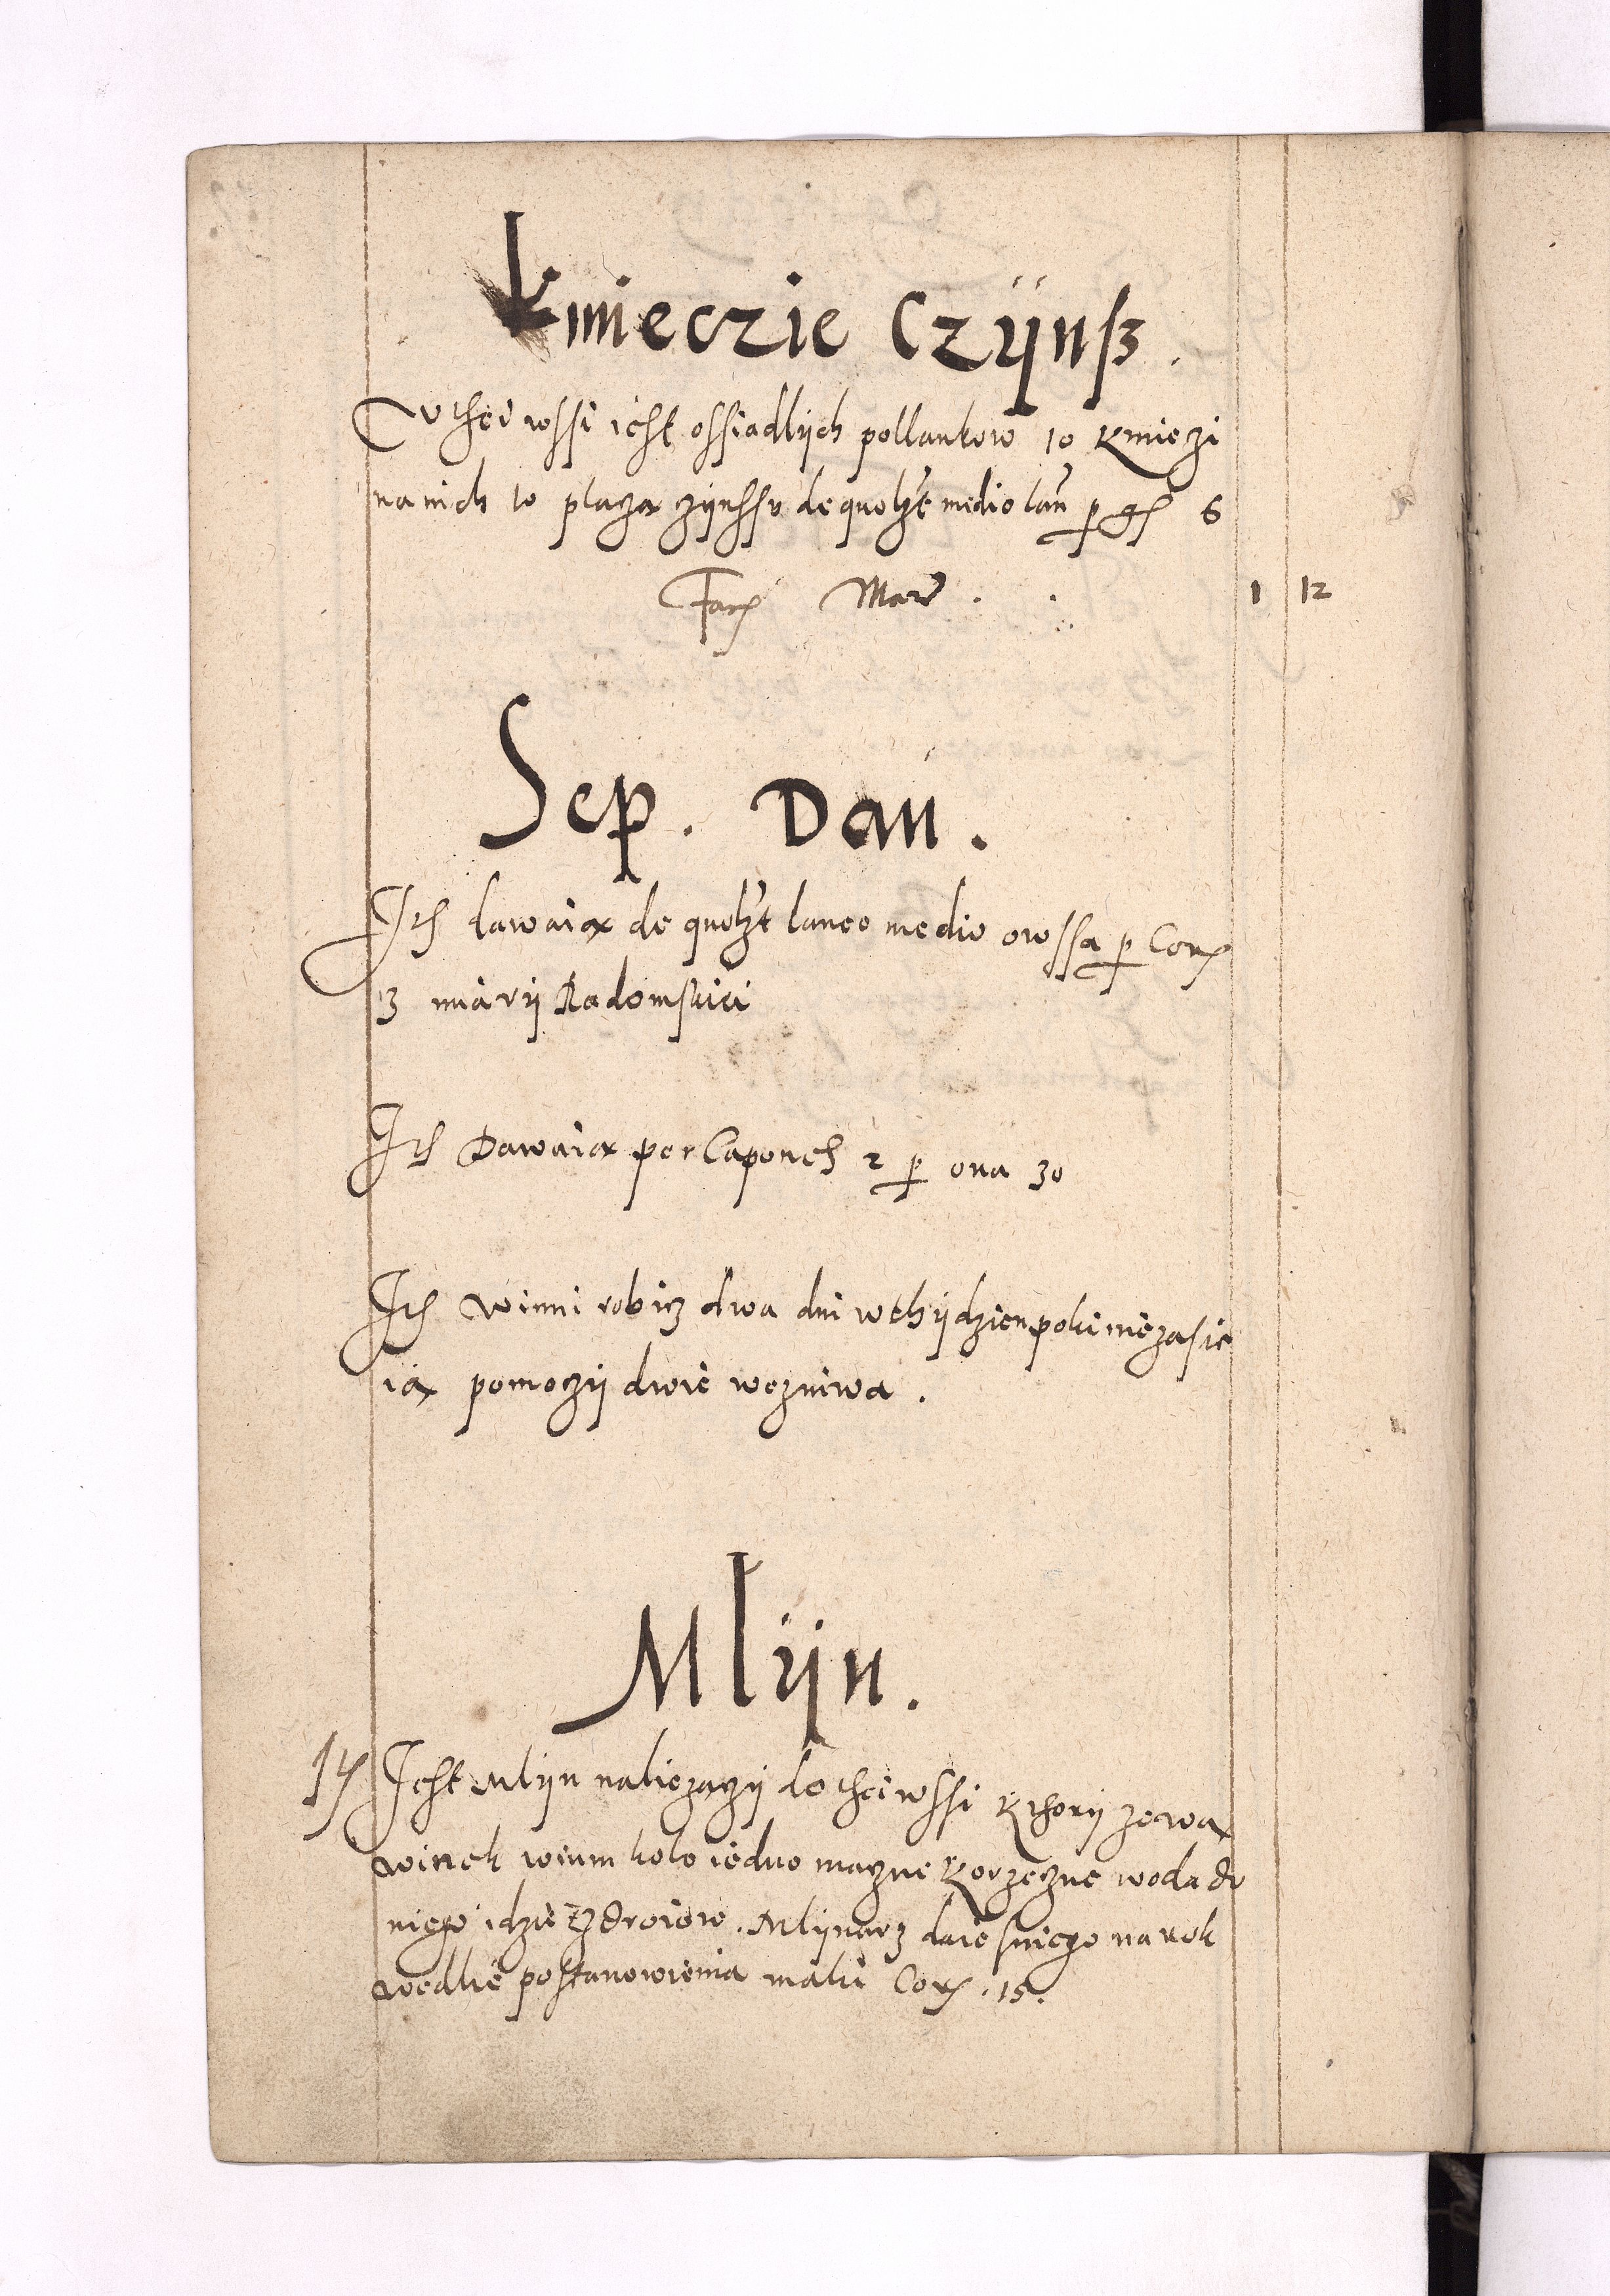 Kmieczie Czÿnß.
W thei wssi iest ossiadlÿch pollankow 10 Kmiezi
na nich 10 plaza zÿnssv de quolzt medio lan̄ p gs 6
Facz Marc . 1 12
Sep. Dan.
Its dawaia de quolzt laneo medio owssa p Corz
3 miarÿ Radomskiei
Its Dawaia per Capones 2 p oua 30
Its Winni robicz dwa dni w thÿdzien poki nie zasie
ia pomoczÿ dwie we zniwa .
Mlÿn.
Iest Mlÿn nalezaczÿ do thei wssi Kthorÿ zowa
winek w nim kolo iedno maczne Korzeczne woda do
niego idzie z Zdroiow . Mlÿnarz daie s niego na rok
wedlie postanowienia maki Corz . 15 .